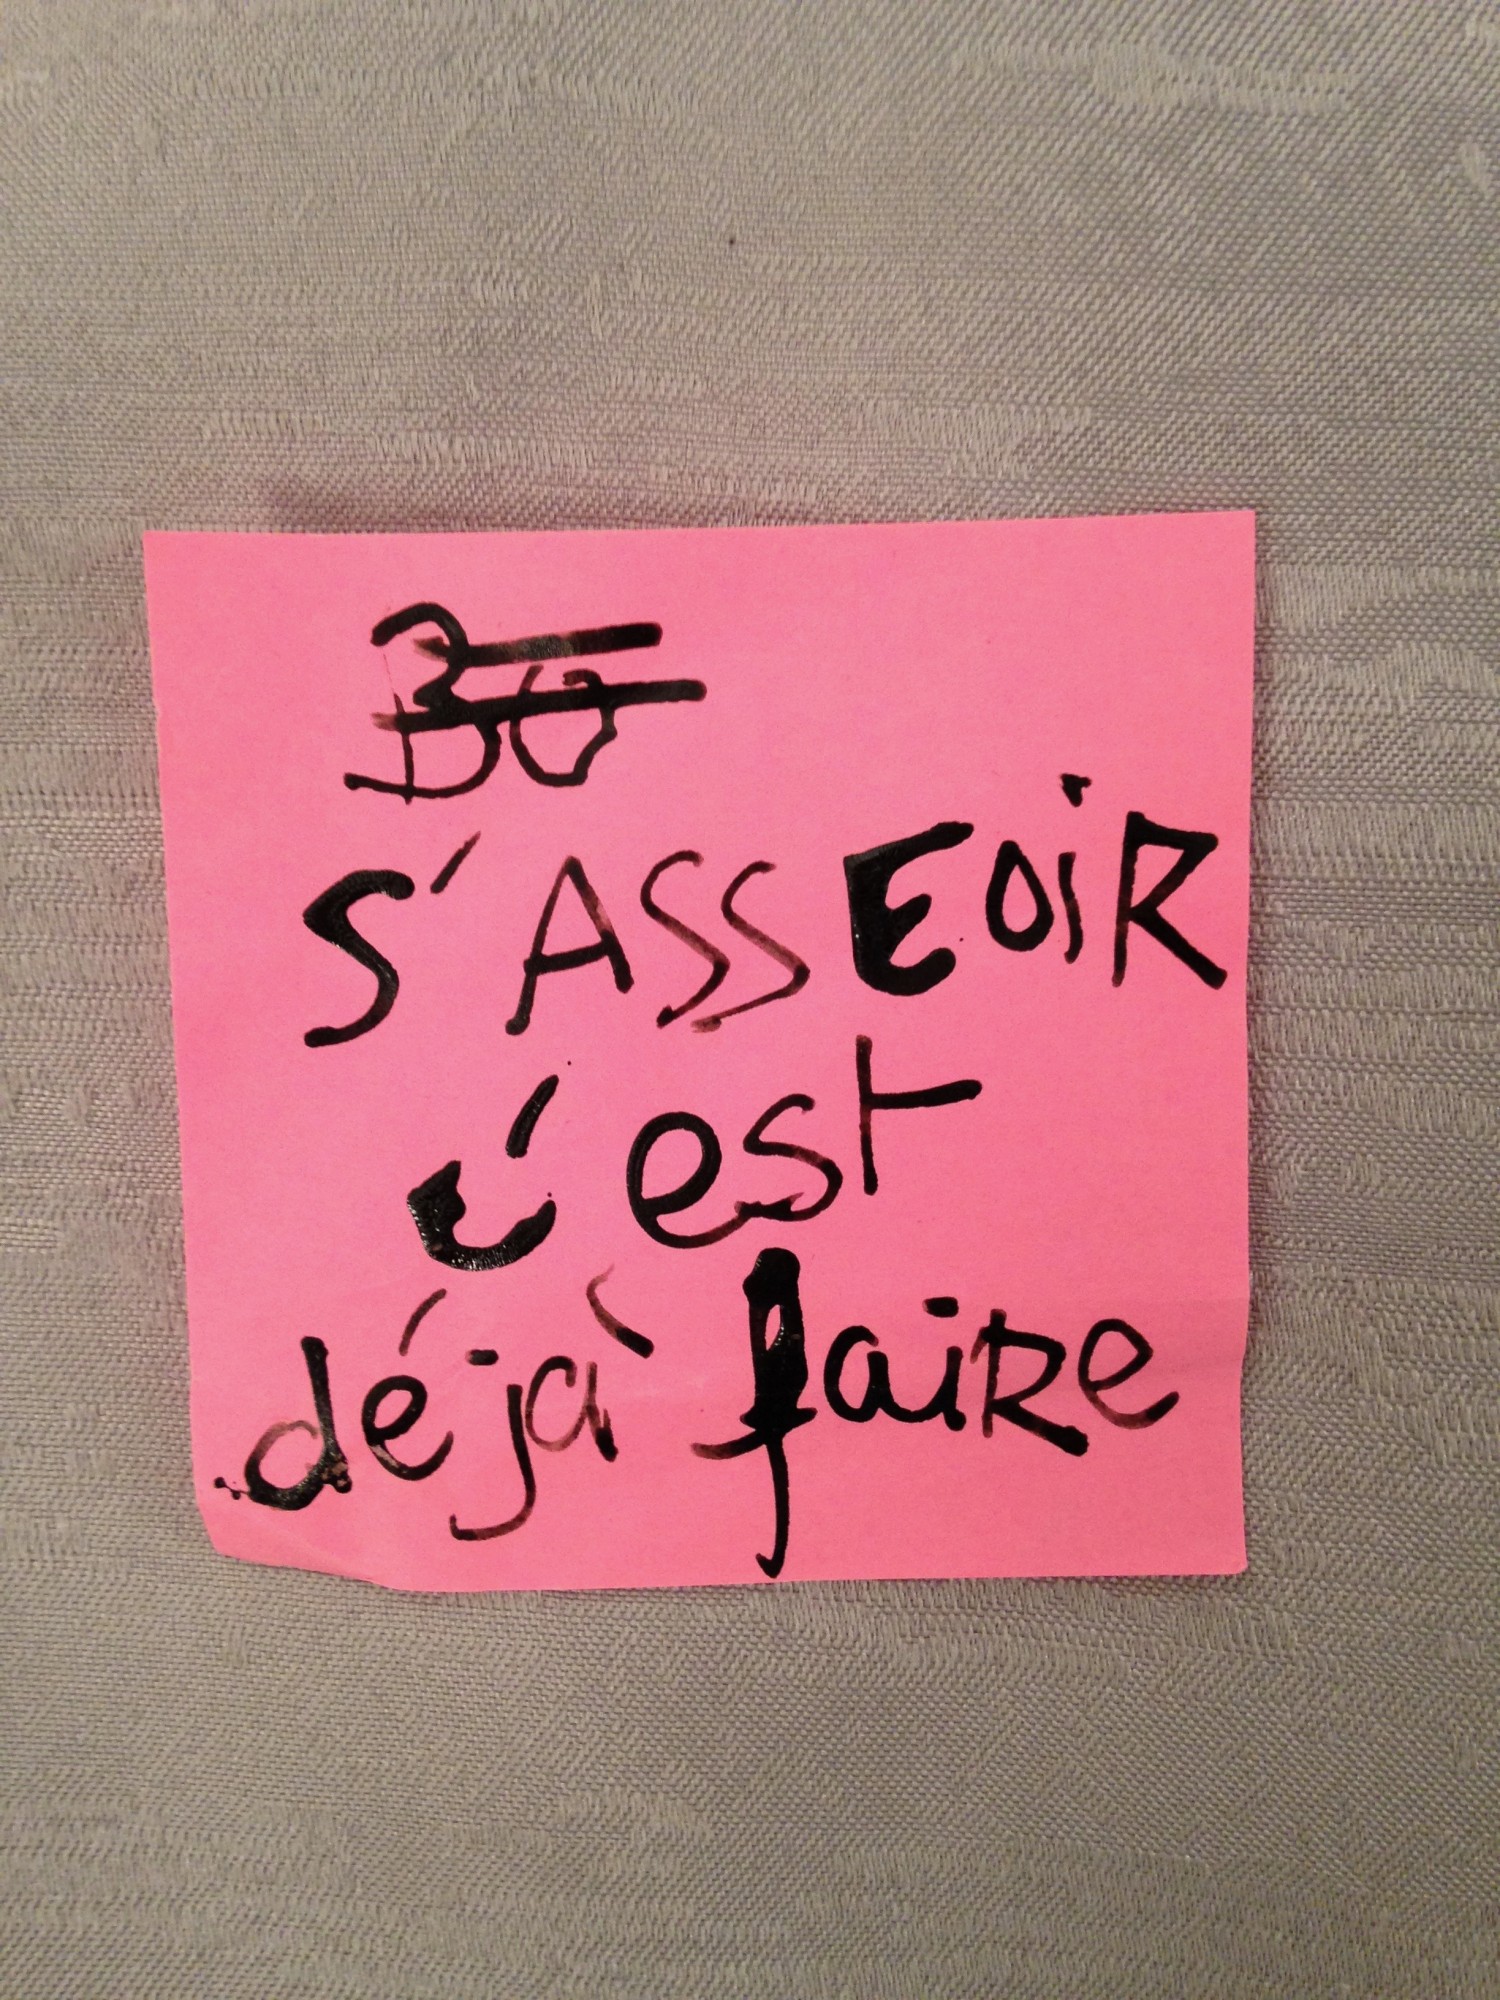 Bo
S'ASSEOIR
c'est
déjà faire